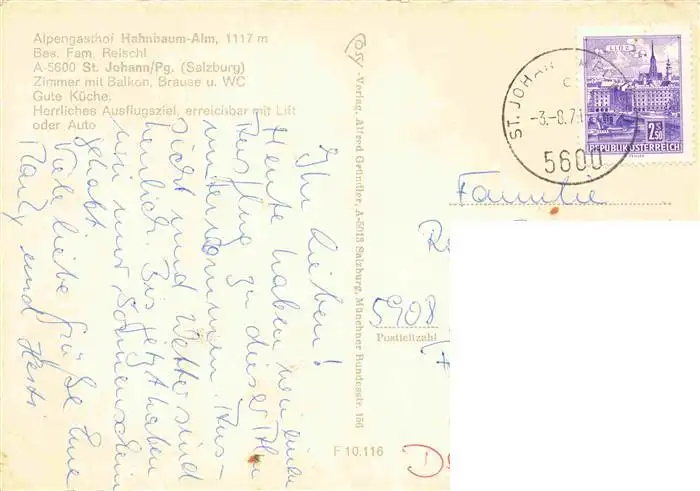 Alpengasthof Hahnbaum-Alm, 1117 m
Bes. Fam. Reischl
A-5600 St. Johann/Pg. (Salzburg)
Zimmer mit Balkon, Brause u. WC
Gute Küche.
Herrliches Ausflugsziel, erreichbar mit Lift
oder Auto
Ihr Lieben!
Heute haben wir einen
Ausflug zu dieser Alm
unternommen. Aus-
sicht und Wetter sind
herrlich. Bis jetzt haben
wir nur Sonnenschein
gehabt
Viele liebe Grüße Eure
und
-Verlag, Alfred Gründler, A-5013 Salzburg, Münchner Bundesstr. 156
F 10.116
LINZ
2.50
REPUBLIK ÖSTERREICH
ST. JOHANN
-3.-8.7
5600
Familie
5908
Postleitzahl